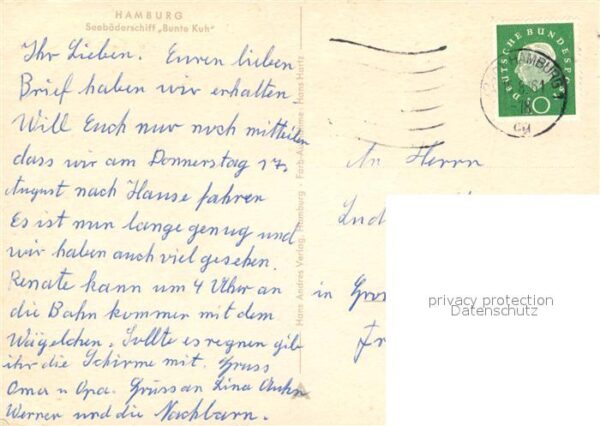 HAMBURG
Seebäderschiff „Bunte Kuh"
Ihr Lieben. Euren lieben
Brief haben wir erhalten.
Will Euch nur noch mitteilen
dass wir am Donnerstag 17.
August nach Hause fahren
Es ist nun lange genug und
wir haben auch viel gesehen.
Renate kann um 4 Uhr an
die Bahn kommen mit dem
Wägelchen. Sollte es regnen gib
ihr die Schirme mit. Gruss
Oma u Opa. Grüss an Lina
Werner und die Nachbarn.
Hans Andres Verlag, Hamburg · Farb-Aufnahme: Hans Hartz
DEUTSCHE BUNDESPOST
HAMBURG
An Herrn
in
privacy protection
Datenschutz